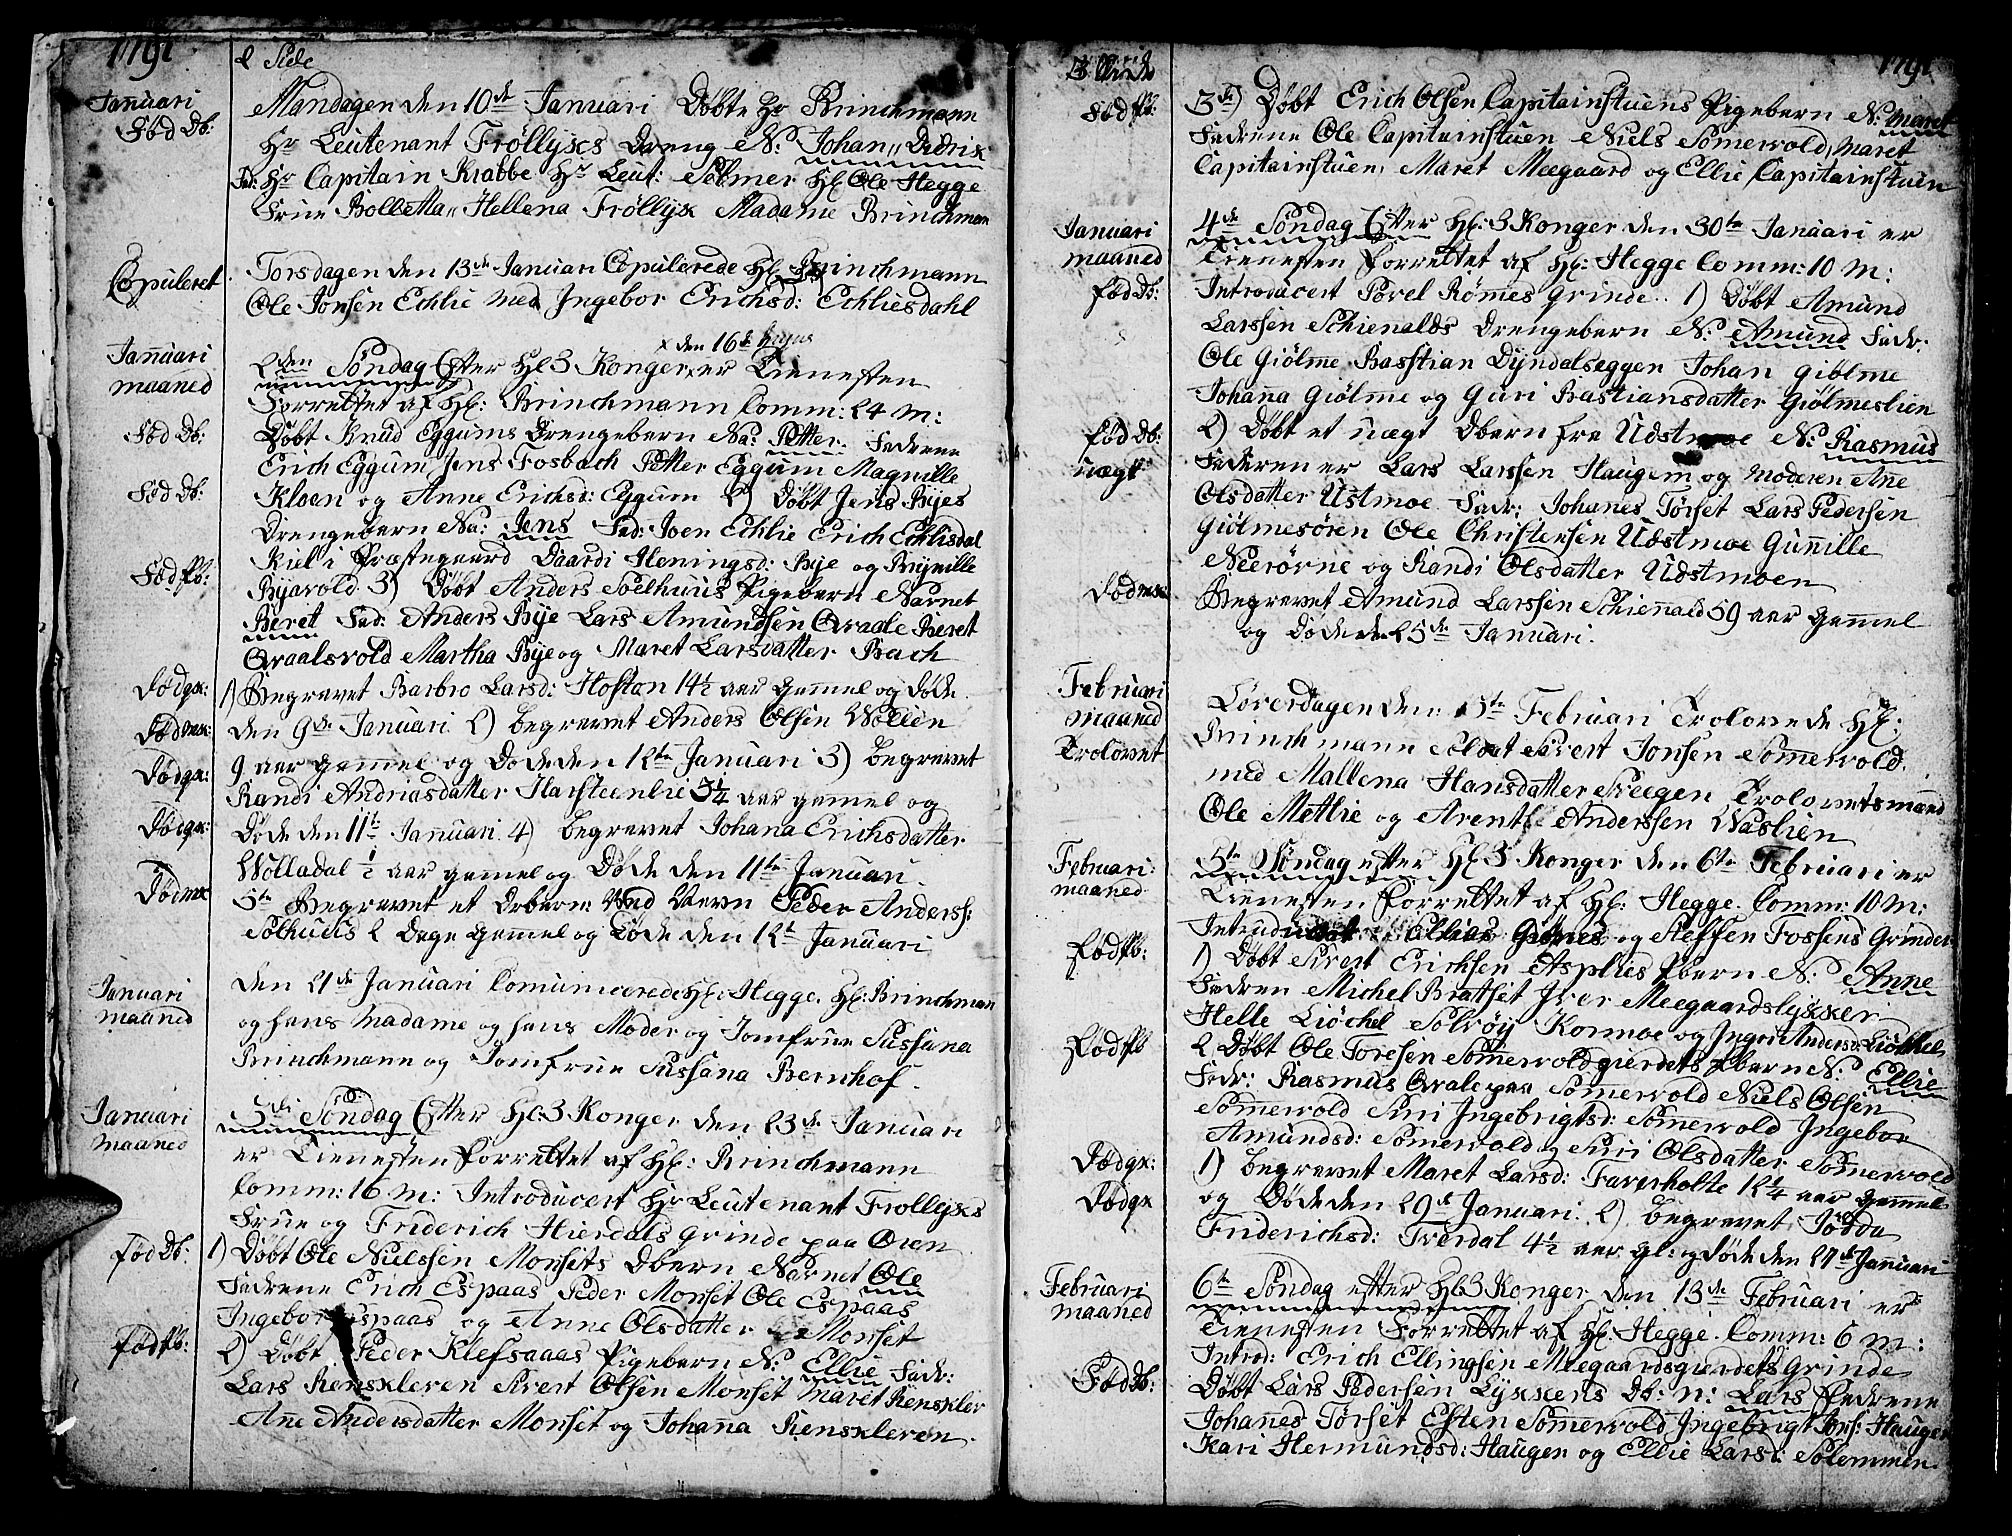 1791
2 Side
Januari
Mandagen den 10de Januari Døbte Hr Brinchmann
Fød Db:
Hr Leutenant Frøllyxes Dreng N: Johan,, Didrik
Fad: Hr Capitain Krabbe Hr Leut: Sølmer Hl Ole Hegge
Frue Bolletta,, Hellena Frøllyx Madame Brinchman
Copuleret
Torsdagen den 13de Januari Copulerede Hl Brinchmann
Ole Jonsen Echlie med Ingebor Erichsd: Echliesdahl
x den 16de hujus
Januari
maaned
2den Søndag Efter Hl 3 Konger x er Tienesten
Forrettet af Hl: Brinchmann Comm: 24 M:
Fød Db:
Døbt Knud Eggums Drengebern Na: Petter Fadrene
Erich Eggum Jens Fosbach Petter Eggum Magnille
Fød Db:
Kloan og Anne Erichsd: Eggum 2) Døbt Jens Byes
Drengebern Na: Jens Fad: Joen Echlie Erich Echlisdal
Kiel i Præstegaard Daardi Hemingsd: Bye og Brynille
Fød Pb:
Byavold 3) Døbt Anders Solhuus Pigebern Navnet
Beret Fad: Anders Bye Lars Amundsen Qvaale Beret
Qvaalsvold Martha Bye og Maret Larsdatter Bach
Død qx:
1) Begravet Barbro Larsd: Hoston 14½ aar gammel og døde
Død mx:
den 9de Januari 2) begrevet Anders Olsen Wollen
Død qx:
9 aar gammel og Døde den 12te Januari 3) begrevet
Randi Andriasdatter Harsteenlie 3¼ aar gammel og
Død qx:
Døde den 11te Januari 4) begrevet Johana Erichsdatter
Wolladal ½ aar gemel og Døde den 11te Januari
Død mx
5te Begrevet et Drbern ved Nevn Peder Anderss:
Solhuus 2 Dage gemel og Døde den 12te Januari
Januari
maaned
den 21de Januari Comunicerede Hl: Hegge. Hl: Brinchman
og hans Madame og hans Moder og Jomfrue Sussana
Brinchmann og Jomfrue Sussana Bernhof.
Januari
maaned
3die Søndag Efter Hl: 3 Konger den 23de Januari
er Tienesten Forrettet af Hl: Brinchmann
Comm: 16 M: Introducert Hr Leutenant Frollyxes
Frue og Friderich Hierdals grinde paa Øren
Fød Db:
1) Døbt Ole Nielssen Monsets Dbern Navnet Ole
Fadrene Erich Espaas Peder Monset Ole Espaas
Ingebor Espaas og Anne Olsdatter Monset
Fød Pb:
2) Døbt Peder Klefsaaas Pigebern N: Ellie Fadr:
Lars Rensxleren Sivert Olsen Monset Maret Rensxler
Ane Andersdatter Monset og Johana Rensxleren
3 Side
1791
Fød Pb:
3de) Døbt Erich Olsen Capitainstuens Pigebern N: Maret
Fadrene Ole Capitainstuen Niels Somervold Maret
Capitainstuen Maret Meegaard og Ellie Capitainstuen
Januari
maaned
4de Søndag Efter Hl: 3 Konger den 30te Januari er
Tienesten Forrettet af Hl: Hegge Comm: 10 M:
Fød Db:
Introducert Povel Rømes grinde. 1) Døbt Amund
Larssen Schienalds Drengebern N: Amund Fadr:
Ole Giølme Basstian Dyndalseggen Johan giølme
Johana Giølme og Guri Bastiansdatter Giølmeslien
Fød Db:
2) Døbt et uægt Dbern fra Udstmoe N: Rasmus
uægt
Faderen er Lars Larssen Haugem og Moderen Ane
Olsdatter Ustmoe Fadr: Johanes Tørset Lars Pedersen
Giølmesøren Ole Christensen Udstmoe Gunille
Neerørne og Randi Olsdatter Udstmoen
Død mx:
Begrevet Amund Larssen Schienald 59 aar gammel
og døde den 25de Januari.
Februari
maaned
Løverdagen den 5te Februari Trolovede Hl:
Trolovet
Brinchmann Soldat Sivert Jonsen Somervold
med Mallena Hansdatter Skeegen Trolovetsmænd
Ole Metlie og Arenth Anderssen Waslien
Februari
maaned
5te Søndag efter Hl 3 Konger den 6te Februari er
Tienesten Forrettet af Hl: Hegge. Comm: 10 M:
Introducert Ellias Grønes og Steffen Fossens Grinder
Fød Pb:
1) Døbt Sivert Erichsen Asplies Pbern N: Anne
Fadren Michel Bratset Iver Meegaardslyxxen
Helle Liøchel Solvøy Kormoe og Ingri Andersd: Liøchel
Fød Pb
2 Døbt Ole Toresen Somervoldgierdets Pbern N: Ellie
Fadr: Rasmus Qvale paa Somervold Niels Olsen
Somervold Siri Ingebrigtsd: Somervold Ingebor
Amundsd: Somervold og Siri Olsdatter Somervold
Død qx:
1) begrevet Maret Larsd: Faverholte 12¼ aar gammel
Død qx
og Døde den 29de Januari. 2) begrevet Jødda
Friderichsd: Tverdal 4½ aar gl: og døde den 27de Januari
Februari
maaned
6te Søndag efter Hl 3 Konger den 13de Februari er
Tienesten Forrettet af Hl: Hegge. Comm: 6 M:
Introd: Erich Ellingsen Meegaardsgierdets Grinde
Fød Db:
Døbt Lars Pedersen Lyxxens Db: N: Lars Fadrene
Johanes Tørset Esten Somervold Ingebrigt Jons: Haugen
Kari Hermundsd: Haugen og Ellie Larsd: Solemmen